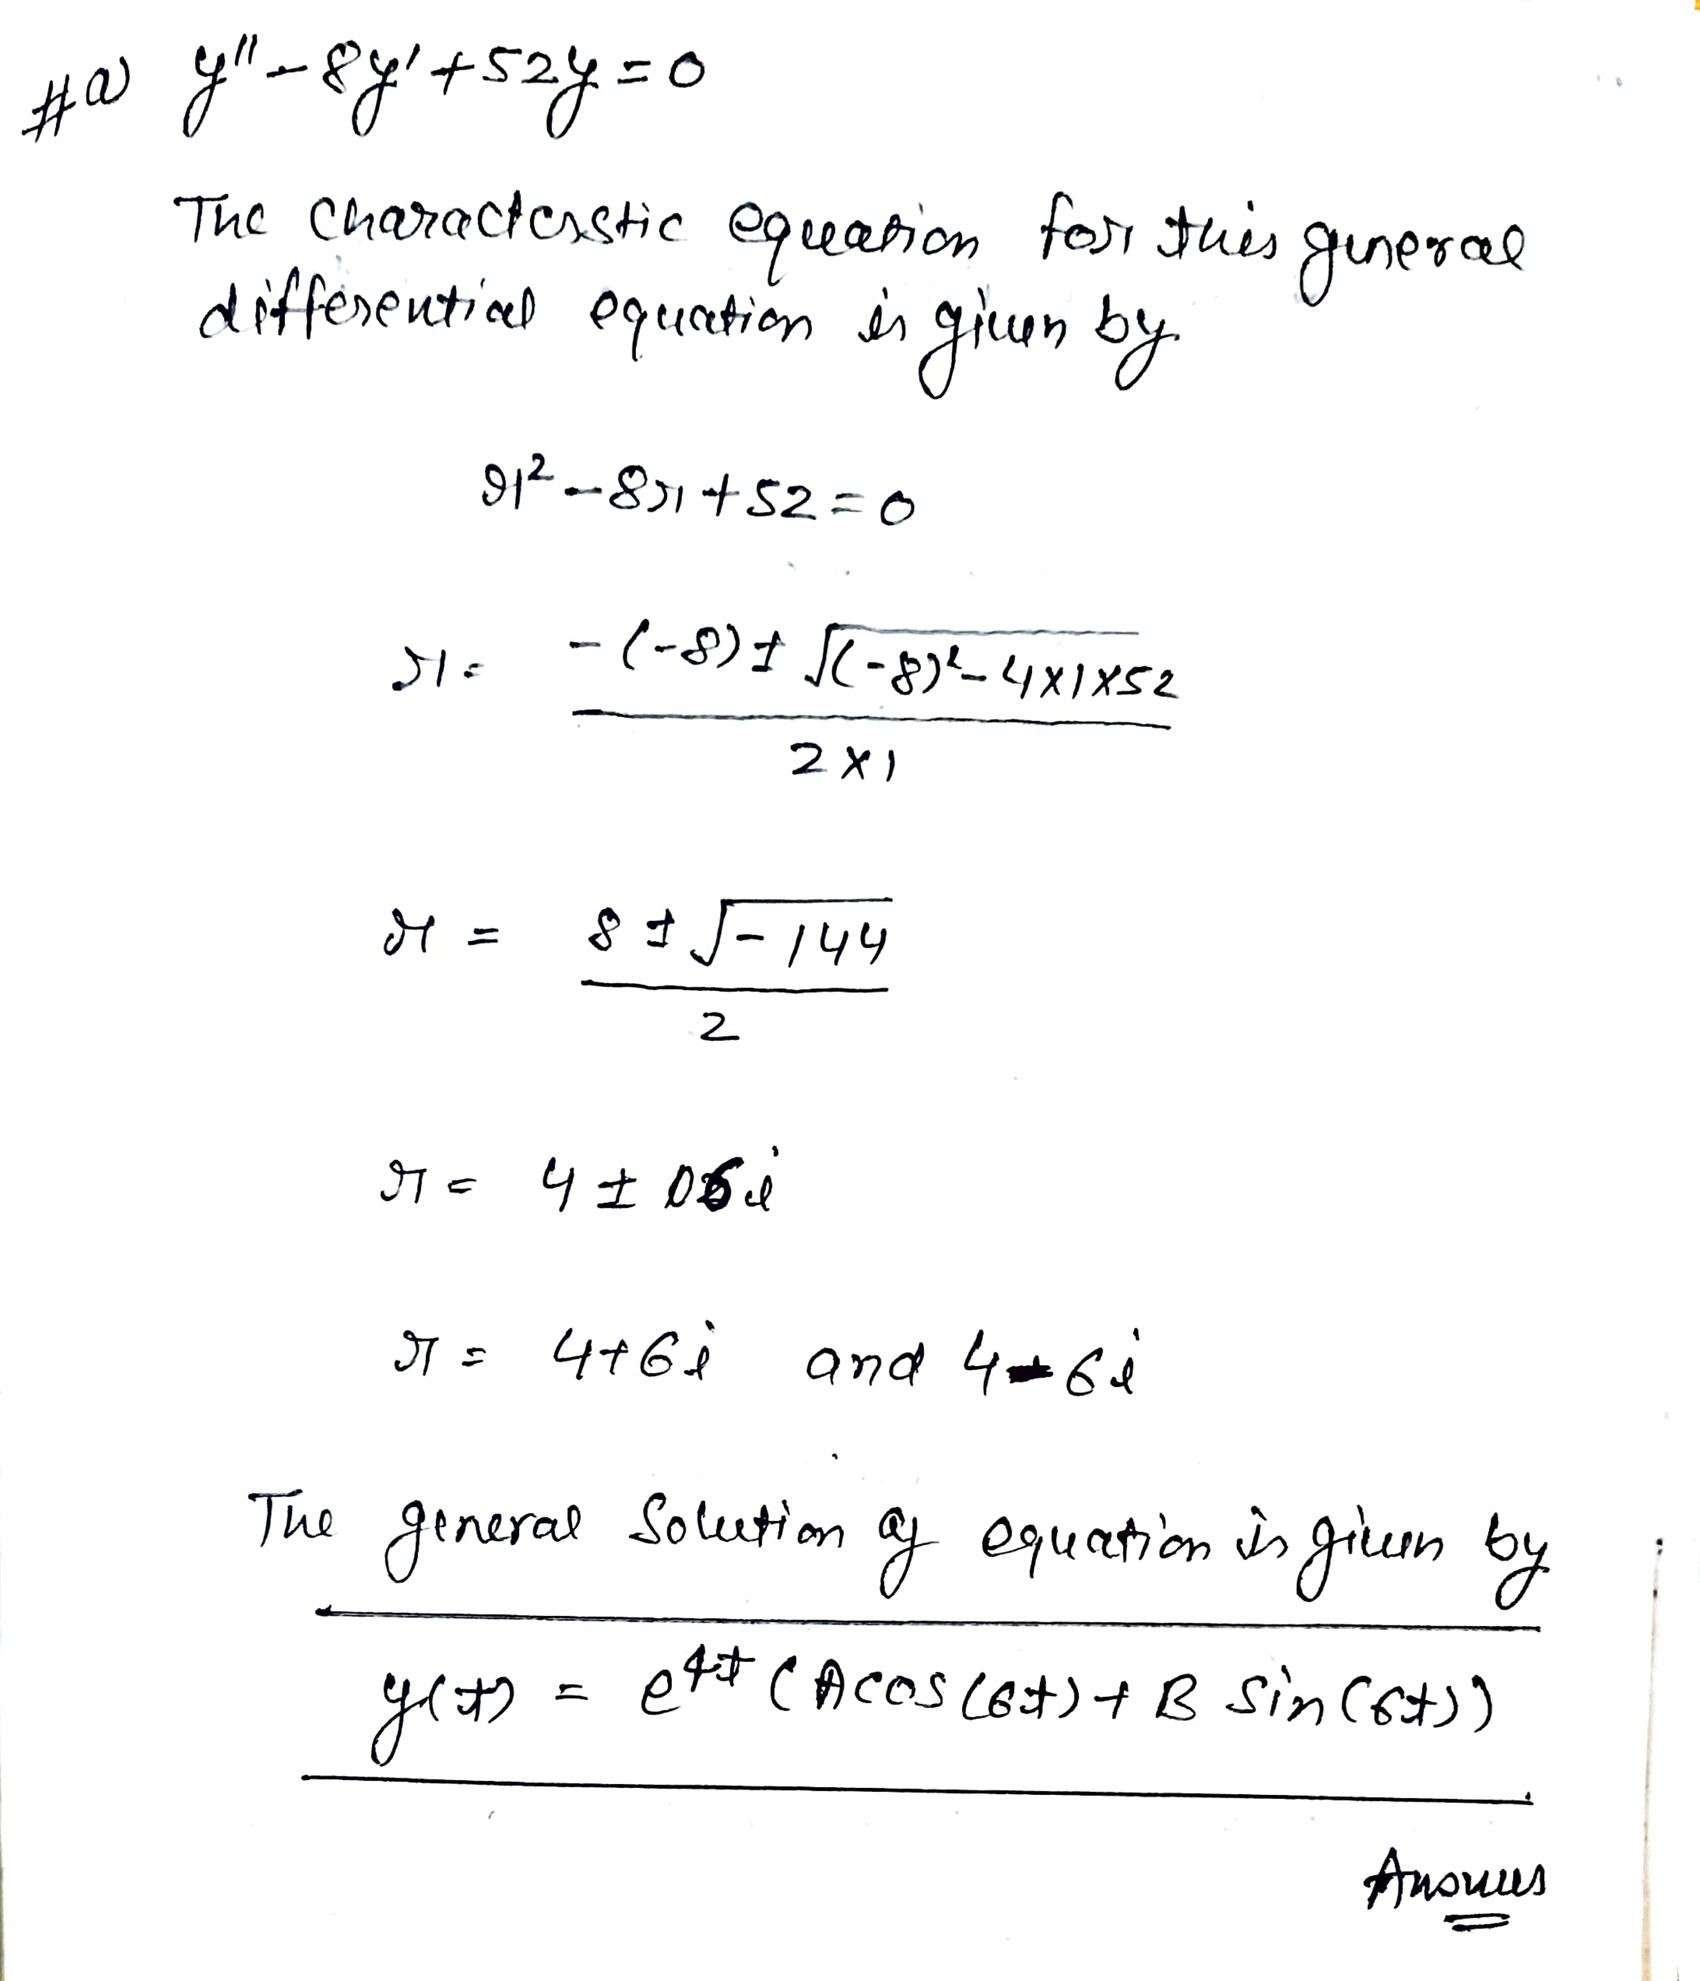 #a) y'' - 8y' + 52y = 0
The Characterstic equation for this general
differential equation is given by
r² - 8r + 52 = 0
r = -(-8) ± √(-8)² - 4×1×52
2×1
r = 8 ± √-144
2
r = 4 ± 6i
r = 4+6i and 4-6i
The general Solution of equation is given by
y(t) = e^4t (Acos(6t) + B Sin(6t))
Answer